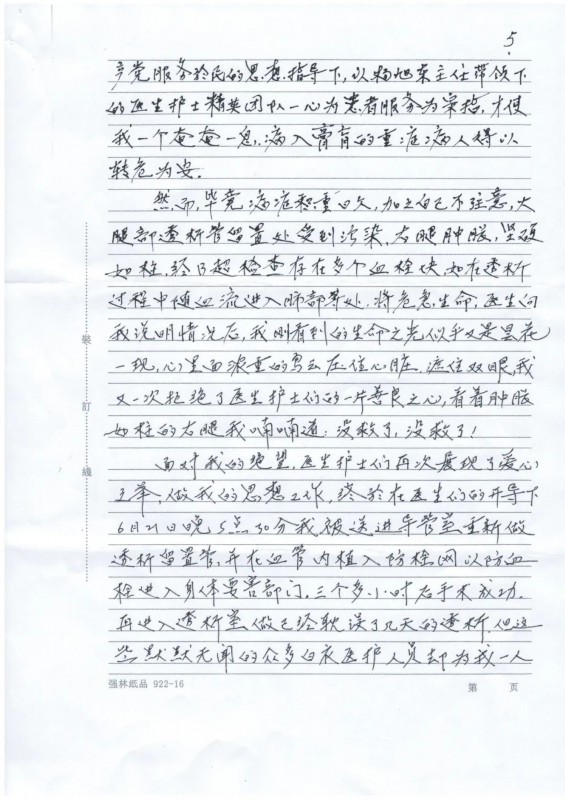 5.
产党服务於民的思想指导下,以杨旭东主任带领下
的医生护士精英团队一心为患者服务为宗旨,才使
我一个奄奄一息,病入膏肓的重症病人得以
转危为安.
然而,毕竟病症积重日久,加之自己不注意,大
腿部透析管留置处受到污染,右腿肿胀,坚硬
如柱,经B超检查存在多个血栓块,如在透析
过程中随血流进入肺部等处,将危急生命,医生向
我说明情况后,我刚看到的生命之光似乎又是昙花
一现,心里面浓重的乌云压住心脏,遮住双眼,我
又一次拒绝了医生护士们的一片善良之心,看着肿胀
如柱的右腿我喃喃道:没救了,没救了!
面对我的绝望,医生护士们再次展现了爱心
之举,做我的思想工作,终於在医生们的开导下
6月21日晚5点30分我被送进导管室重新做
透析留置管,并在血管内植入防栓网以防血
栓进入身体要害部门.三个多小时后手术成功.
再进入透析室做已经耽误了几天的透析.但这
些默默无闻的众多白衣医护人员却为我一人
装
订
线
强林纸品 922-16
第 页